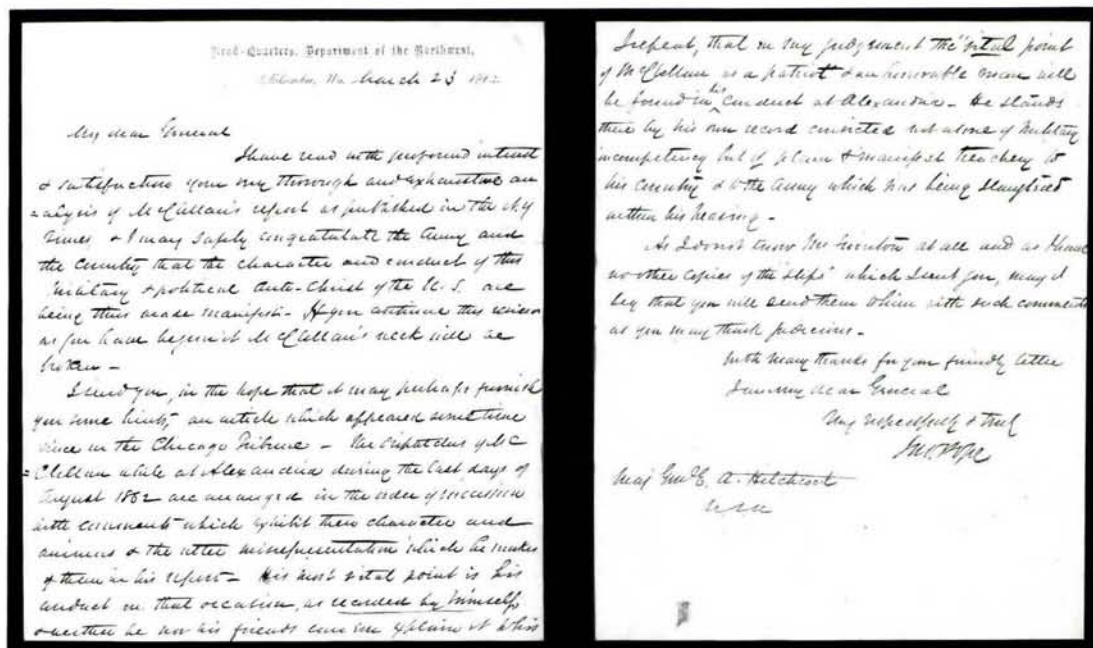 Head-Quarters, Department of the Northwest,
Milwaukee, Wis. March 23 186
My dear General
I have read with profound interest
& satisfaction your very thorough and exhaustive an
=alysis of McClellan's report as published in the N.Y
Times & I may safely congratulate the Army and
the Country that the character and conduct of this
Military & political Anti-Christ of the U.S. are
being thus made manifest. If you continue this review
as you have begun it McClellan's neck will be
broken –
I send you, in the hope that it may perhaps furnish
you some hints, an article which appeared sometime
since in the Chicago Tribune – The despatches of Mc
=Clellan while at Alexandria during the last days of
August 1862 are arranged in the order of succession
with comments which exhibit their character and
animus & the utter misrepresentation which he makes
of them in his report – His most vital point is his
conduct on that occasion, as recorded by himself,
& neither he nor his friends can explain it
I repeat, that in my judgment the "vital point
of McClellan as a patriot & an honorable man will
be found in his conduct at Alexandria – He stands
there by his own record convicted not alone of Military
incompetency but of plain & manifest treachery to
his country & to the Army which was being slaughtered
within his hearing –
As I do not know Mr Swinton at all and as I have
no other copies of the "slips" which I sent you, may I
beg that you will send them to him with such comments
as you may think judicious –
With many thanks for your friendly letter
I am my dear General
Very respectfully & truly
Jno. Pope
Maj Genl E. A. Hitchcock
USA